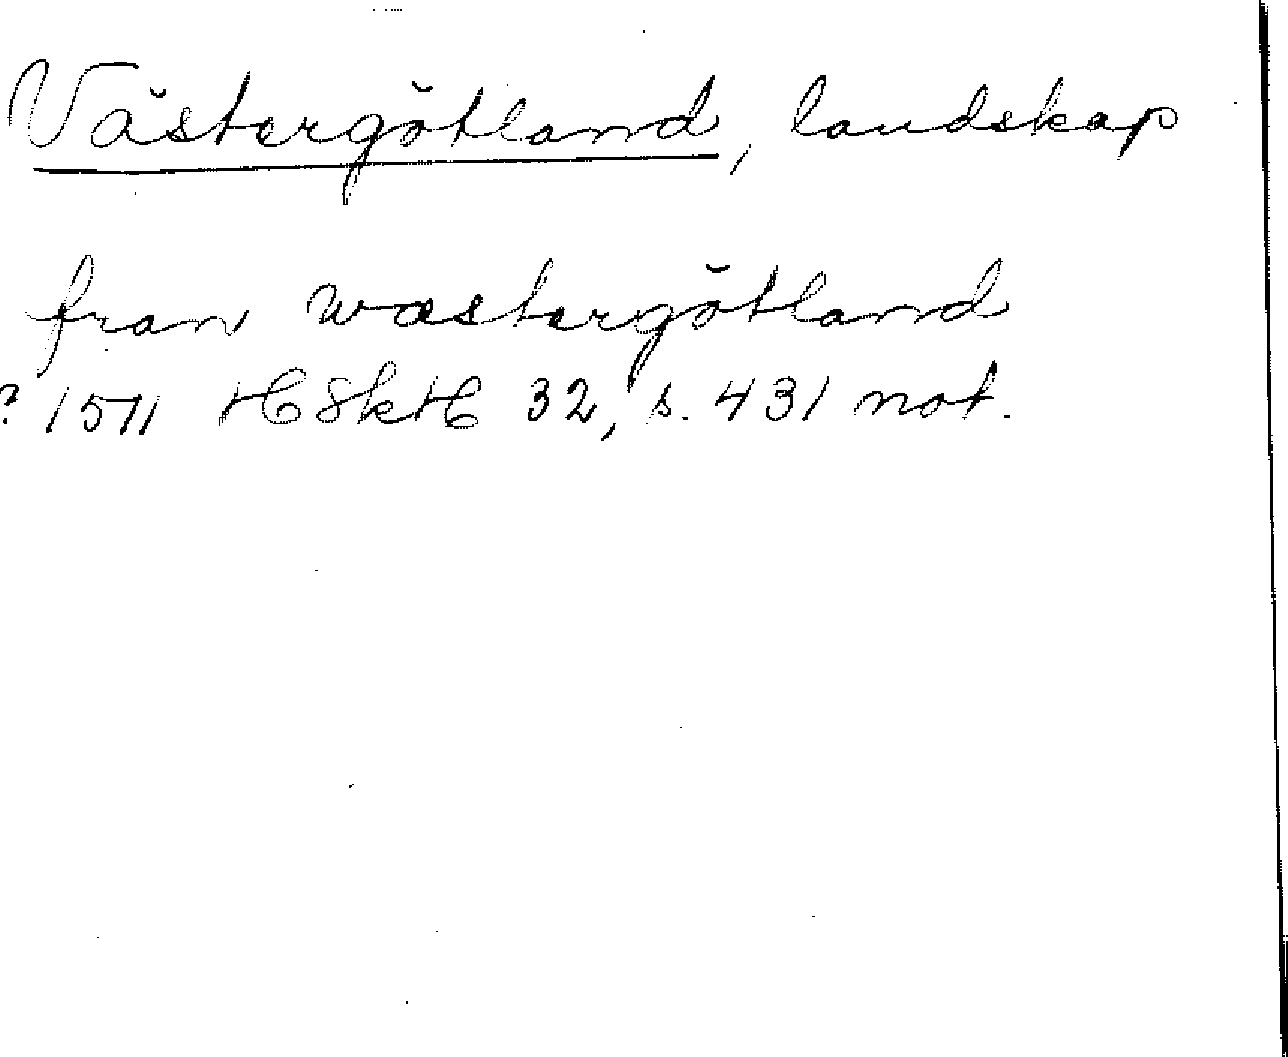 Västergötland, landskap
fran wæstergötland
? 1571 HSkH 32, s. 431 not.